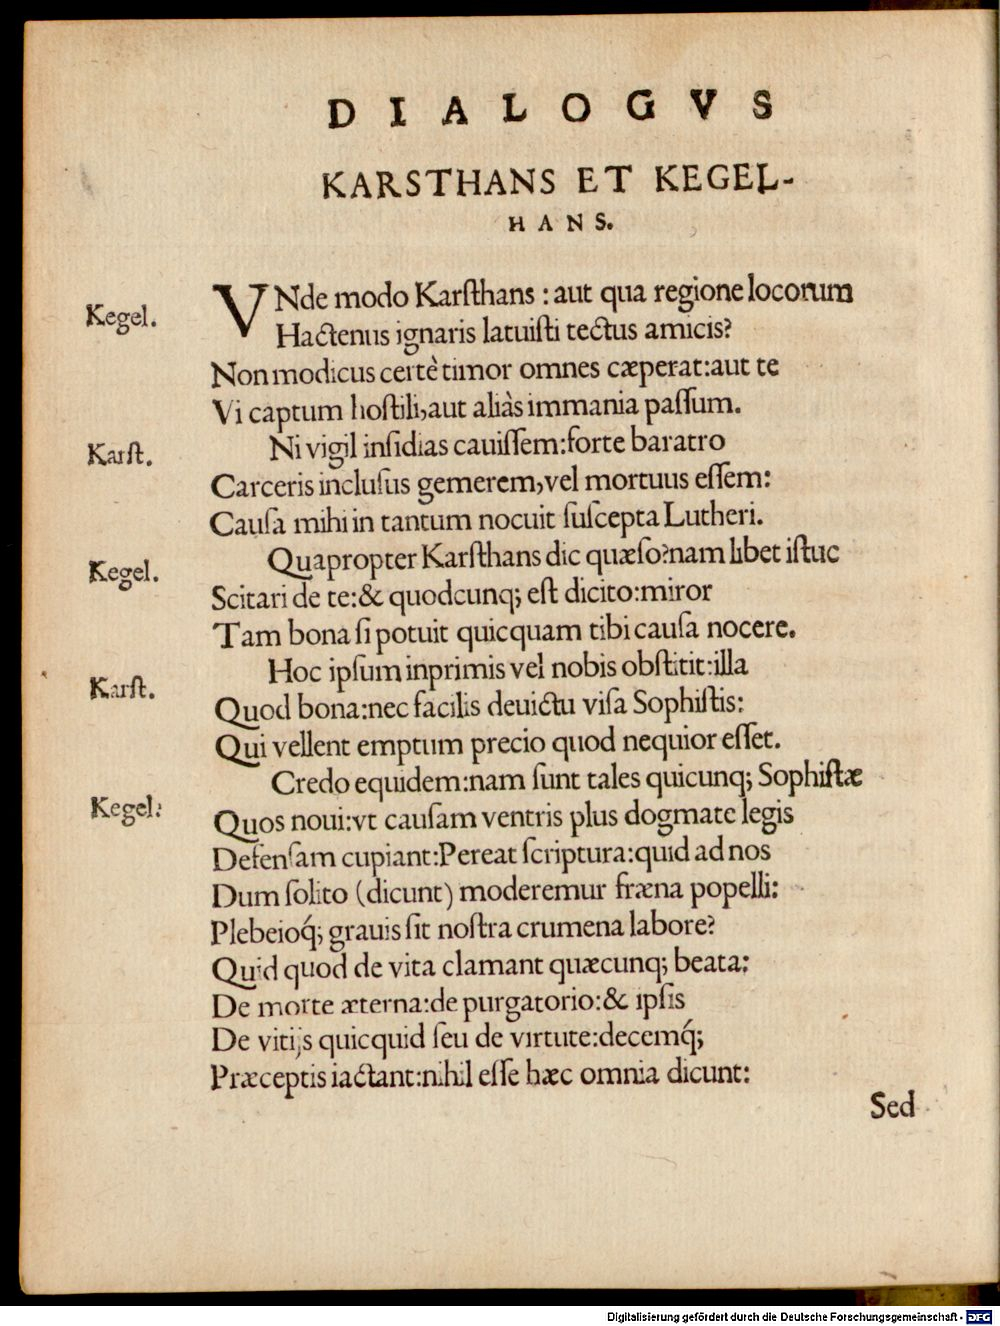 DIALOGVS
KARSTHANS ET KEGEL-
HANS.
Kegel. VNde modo Karsthans : aut qua regione locorum
Hactenus ignaris latuisti tectus amicis?
Non modicus certè timor omnes cæperat:aut te
Vi captum hostili,aut aliàs immania passum.
Karst. Ni vigil insidias cauissem:forte baratro
Carceris inclusus gemerem,vel mortuus essem:
Causa mihi in tantum nocuit suscepta Lutheri.
Kegel. Quapropter Karsthans dic quæso?nam libet istuc
Scitari de te:& quodcunq; est dicito:miror
Tam bona si potuit quicquam tibi causa nocere.
Karst. Hoc ipsum inprimis vel nobis obstitit:illa
Quod bona:nec facilis deuictu visa Sophistis:
Qui vellent emptum precio quod nequior esset.
Kegel: Credo equidem:nam sunt tales quicunq; Sophistæ
Quos noui:vt causam ventris plus dogmate legis
Defensam cupiant:Pereat scriptura:quid ad nos
Dum solito (dicunt) moderemur fræna popelli:
Plebeioq́; grauis sit nostra crumena labore?
Quid quod de vita clamant quæcunq; beata:
De morte æterna:de purgatorio:& ipsis
De vitijs quicquid seu de virtute:decemq́;
Præceptis iactant:nihil esse hæc omnia dicunt:
Sed
Digitalisierung gefördert durch die Deutsche Forschungsgemeinschaft - DFG